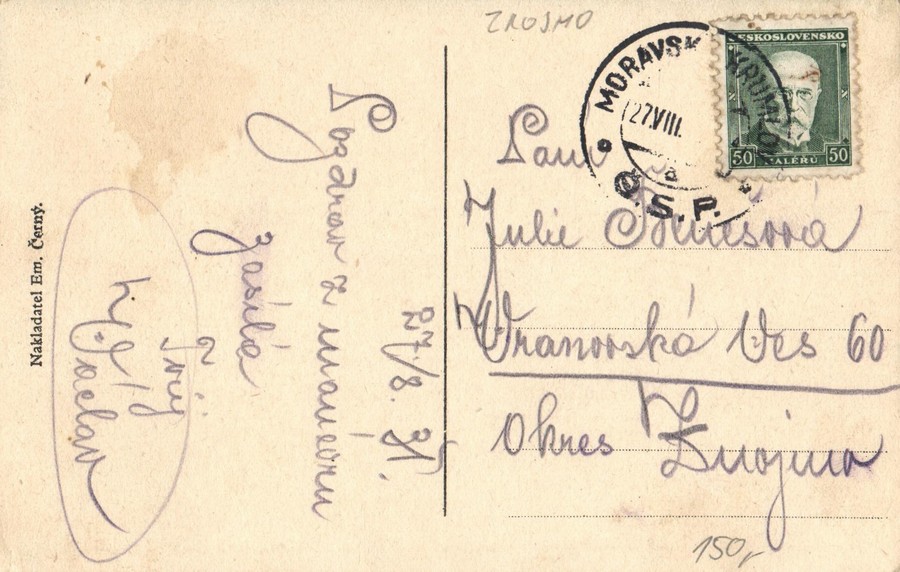 ZNOJMO
Nakladatel Em. Černý.
27/8. 31.
Pozdrav z manévru
zasílá
Tvůj
Václav
MORAVSKÝ KRUMLOV
27 VIII.
a
Č.S.P.
ČESKOSLOVENSKO
50 HALÉŘŮ 50
Paní
Julie
Vranovská Ves 60
Okres Znojmo
150,-